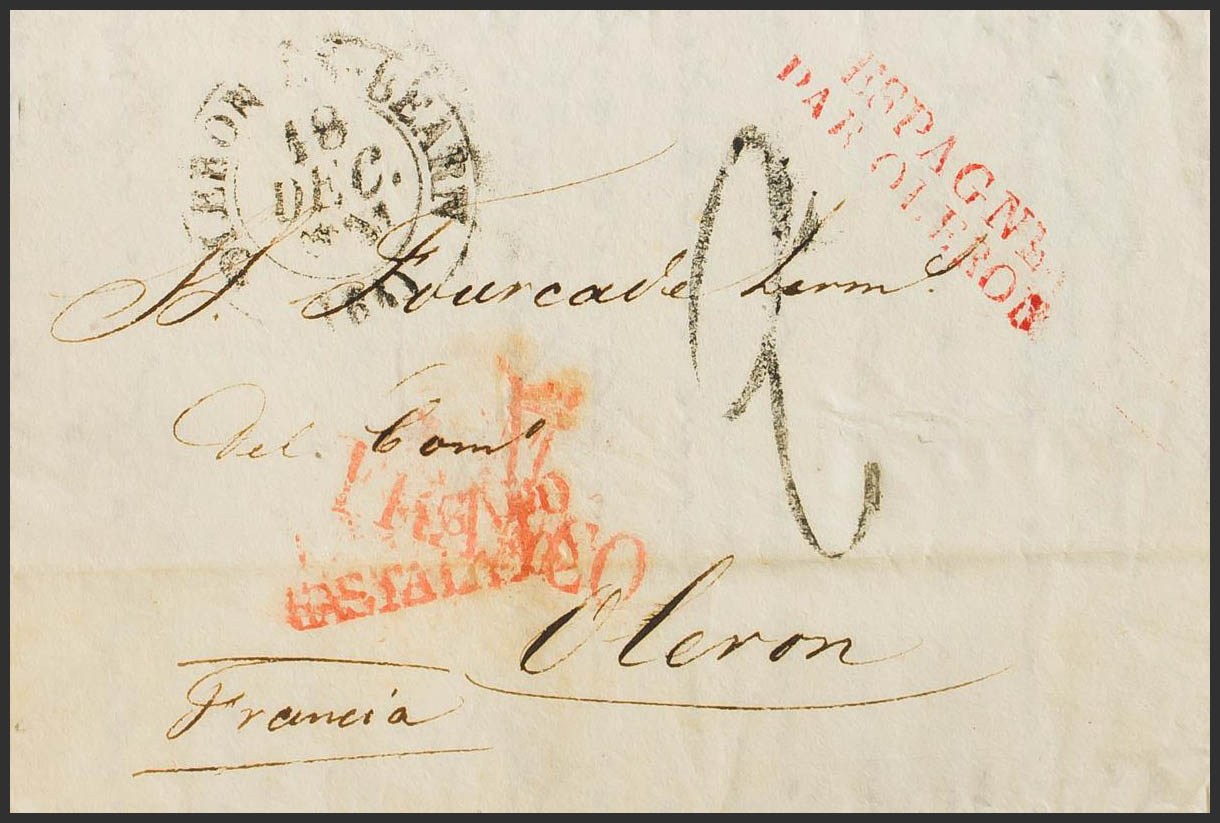 OLERON BEARN
18
DEC.
ESPAGNE
PAR OLERON
S. Fourcade herm.s
del Com.o
2
17
HASTA LA
Oleron
Francia